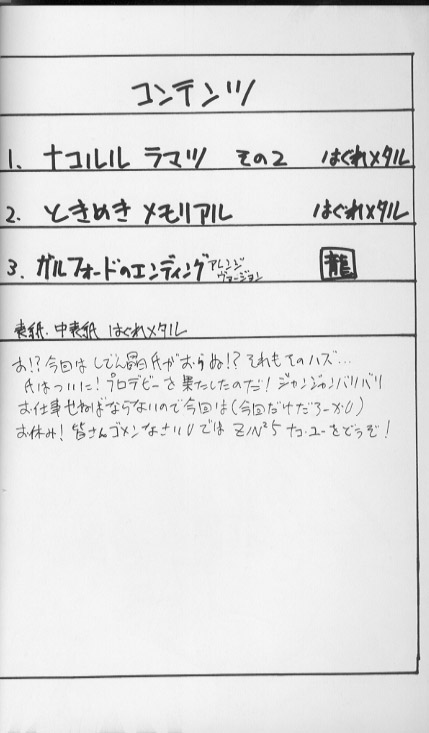 コンテンツ
1. ナコルル ラマツ その2 はぐれメタル
2. ときめき メモリアル はぐれメタル
3. ガルフォードのエンディング アレンジ ヴァージョン 龍
表紙・中表紙 はぐれメタル
お!?今回はしでん晶氏がおらぬ!?それもそのハズ…
氏はついに!プロデビーを果たしたのだ!ジャンジャンバリバリ
お仕事せねばならないので今回は(今回だけだろーが)
お休み!皆さんゴメンなさい では をどうぞ!